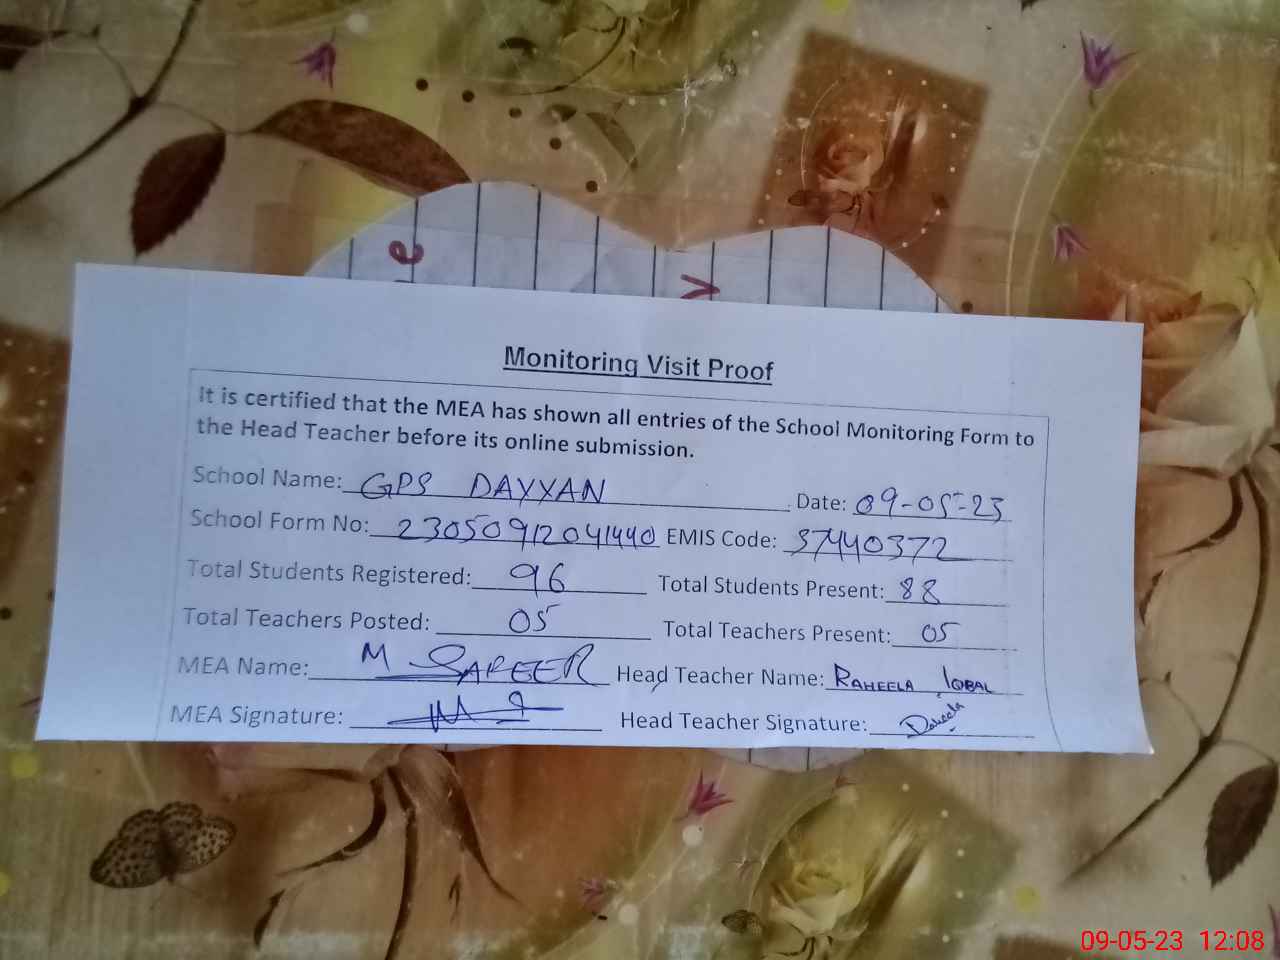 e
v
Monitoring Visit Proof
It is certified that the MEA has shown all entries of the School Monitoring Form to
the Head Teacher before its online submission.
School Name: GPS DAYYAN Date: 09-05-23
School Form No: 23050912041440 EMIS Code: 37440372
Total Students Registered: 96 Total Students Present: 88
Total Teachers Posted: 05 Total Teachers Present: 05
MEA Name: M SAFEER Head Teacher Name: RAHEELA IQBAL
MEA Signature: Head Teacher Signature: Raheela
09-05-23 12:08